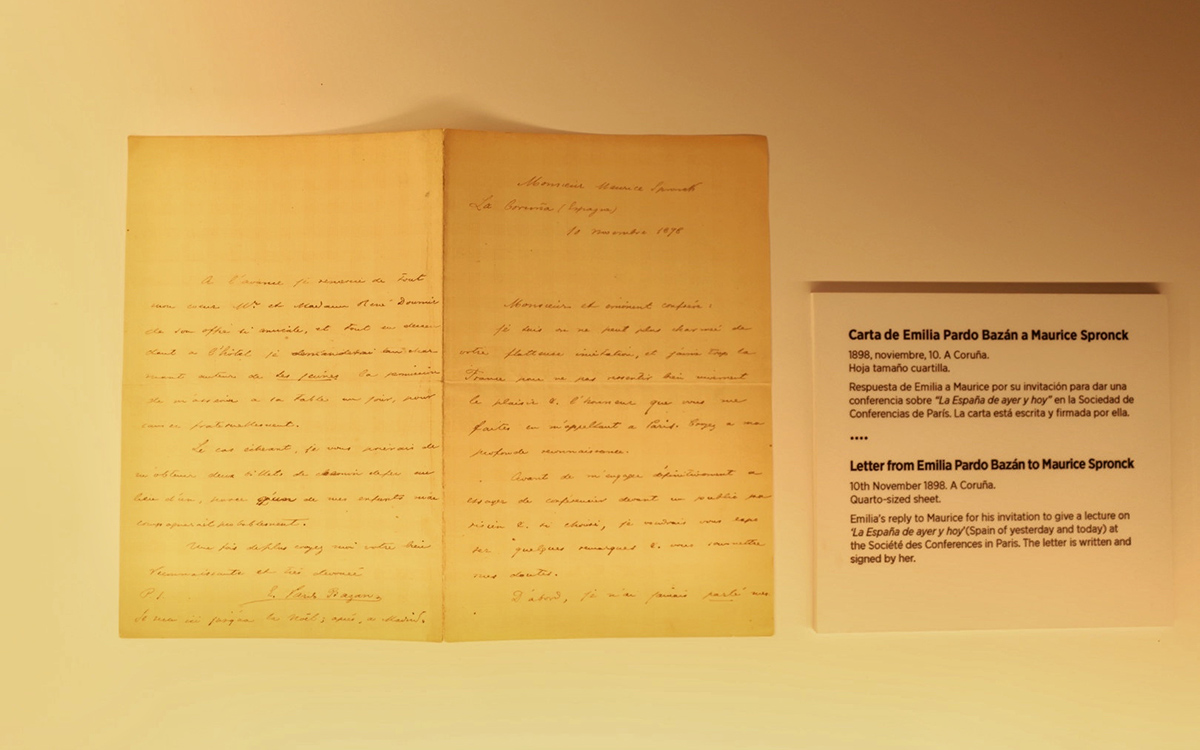 A l'avance je remercie de tout
mon cœur Mr et Madame René Doumic
de son offre si amicale, et tout en descen
dant a l'hôtel je demanderai au char
mant auteur de Les jeunes la permission
de m'asseoir a sa table un jour, pour
causer
Le cas échéant, je vous prierais de
m'obtenir deux billets de chemin de fer au
lieu d'un, parce de mes enfants m'ac
compagnerait probablement.
Une fois de plus croyez moi votre bien
reconnaissante et très dévouée
E. Pardo Bazan
P. S.
Je suis ici jusqu'a la Noël; après, a Madrid.
Monsieur Maurice Spronck
La Coruña (Espagne)
10 novembre 1898
Monsieur et éminent confrère:
Je suis on ne peut plus charmée de
votre flatteuse invitation, et j'aime trop la
France pour ne pas ressentir bien vivement
le plaisir & l'honneur que vous me
faites en m'appellant a Paris. Croyez a ma
profonde reconnaissance.
Avant de m'engager définitivement a
essayer de conférencier devant un public pa
risien & si choisi, je voudrais vous expo
ser quelques remarques & vous soumettre
mes doutes.
D'abord, je n'ai jamais parlé mes
Carta de Emilia Pardo Bazán a Maurice Spronck
1898, noviembre, 10. A Coruña.
Hoja tamaño cuartilla.
Respuesta de Emilia a Maurice por su invitación para dar una
conferencia sobre "La España de ayer y hoy" en la Sociedad de
Conferencias de París. La carta está escrita y firmada por ella.
••••
Letter from Emilia Pardo Bazán to Maurice Spronck
10th November 1898. A Coruña.
Quarto-sized sheet.
Emilia's reply to Maurice for his invitation to give a lecture on
'La España de ayer y hoy'(Spain of yesterday and today) at
the Société des Conferences in Paris. The letter is written and
signed by her.